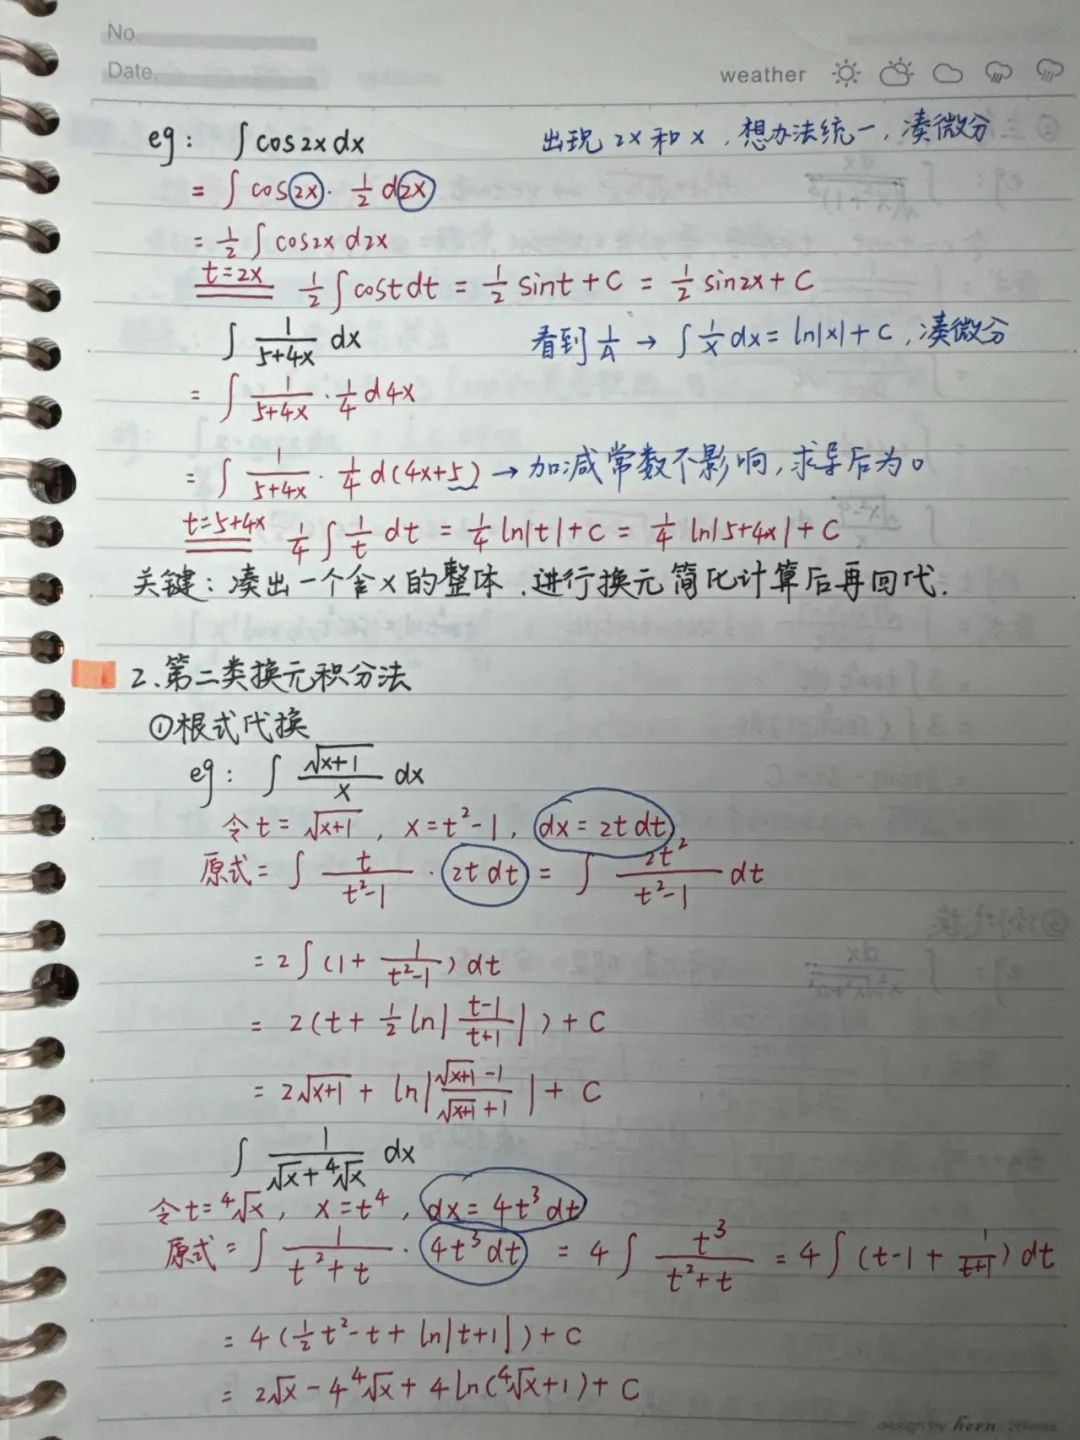 No.
Date.
weather
eg: ∫cos2xdx 出现2x和x,想办法统一,凑微分
= ∫cos2x·½d2x
= ½∫cos2xd2x
t=2x ½∫costdt = ½sint+C = ½sin2x+C
∫ 1/(5+4x) dx 看到1/A → ∫1/x dx = ln|x|+C,凑微分
= ∫ 1/(5+4x) · ¼d4x
= ∫ 1/(5+4x) · ¼d(4x+5) → 加减常数不影响,求导后为0
t=5+4x ¼∫1/t dt = ¼ln|t|+C = ¼ln|5+4x|+C
关键:凑出一个含x的整体,进行换元简化计算后再回代.
2.第二类换元积分法
①根式代换
eg: ∫ √(x+1)/x dx
令t=√(x+1), x=t²-1, dx=2tdt
原式=∫ t/(t²-1) · 2tdt = ∫ 2t²/(t²-1) dt
= 2∫(1+ 1/(t²-1))dt
= 2(t+½ln|(t-1)/(t+1)|)+C
= 2√(x+1) + ln|(√(x+1)-1)/(√(x+1)+1)| + C
∫ 1/(√x+⁴√x) dx
令t=⁴√x, x=t⁴, dx=4t³dt
原式=∫ 1/(t²+t) · 4t³dt = 4∫ t³/(t²+t) = 4∫(t-1+ 1/(t+1))dt
= 4(½t²-t+ln|t+1|)+C
= 2√x-4⁴√x+4ln(⁴√x+1)+C
design by